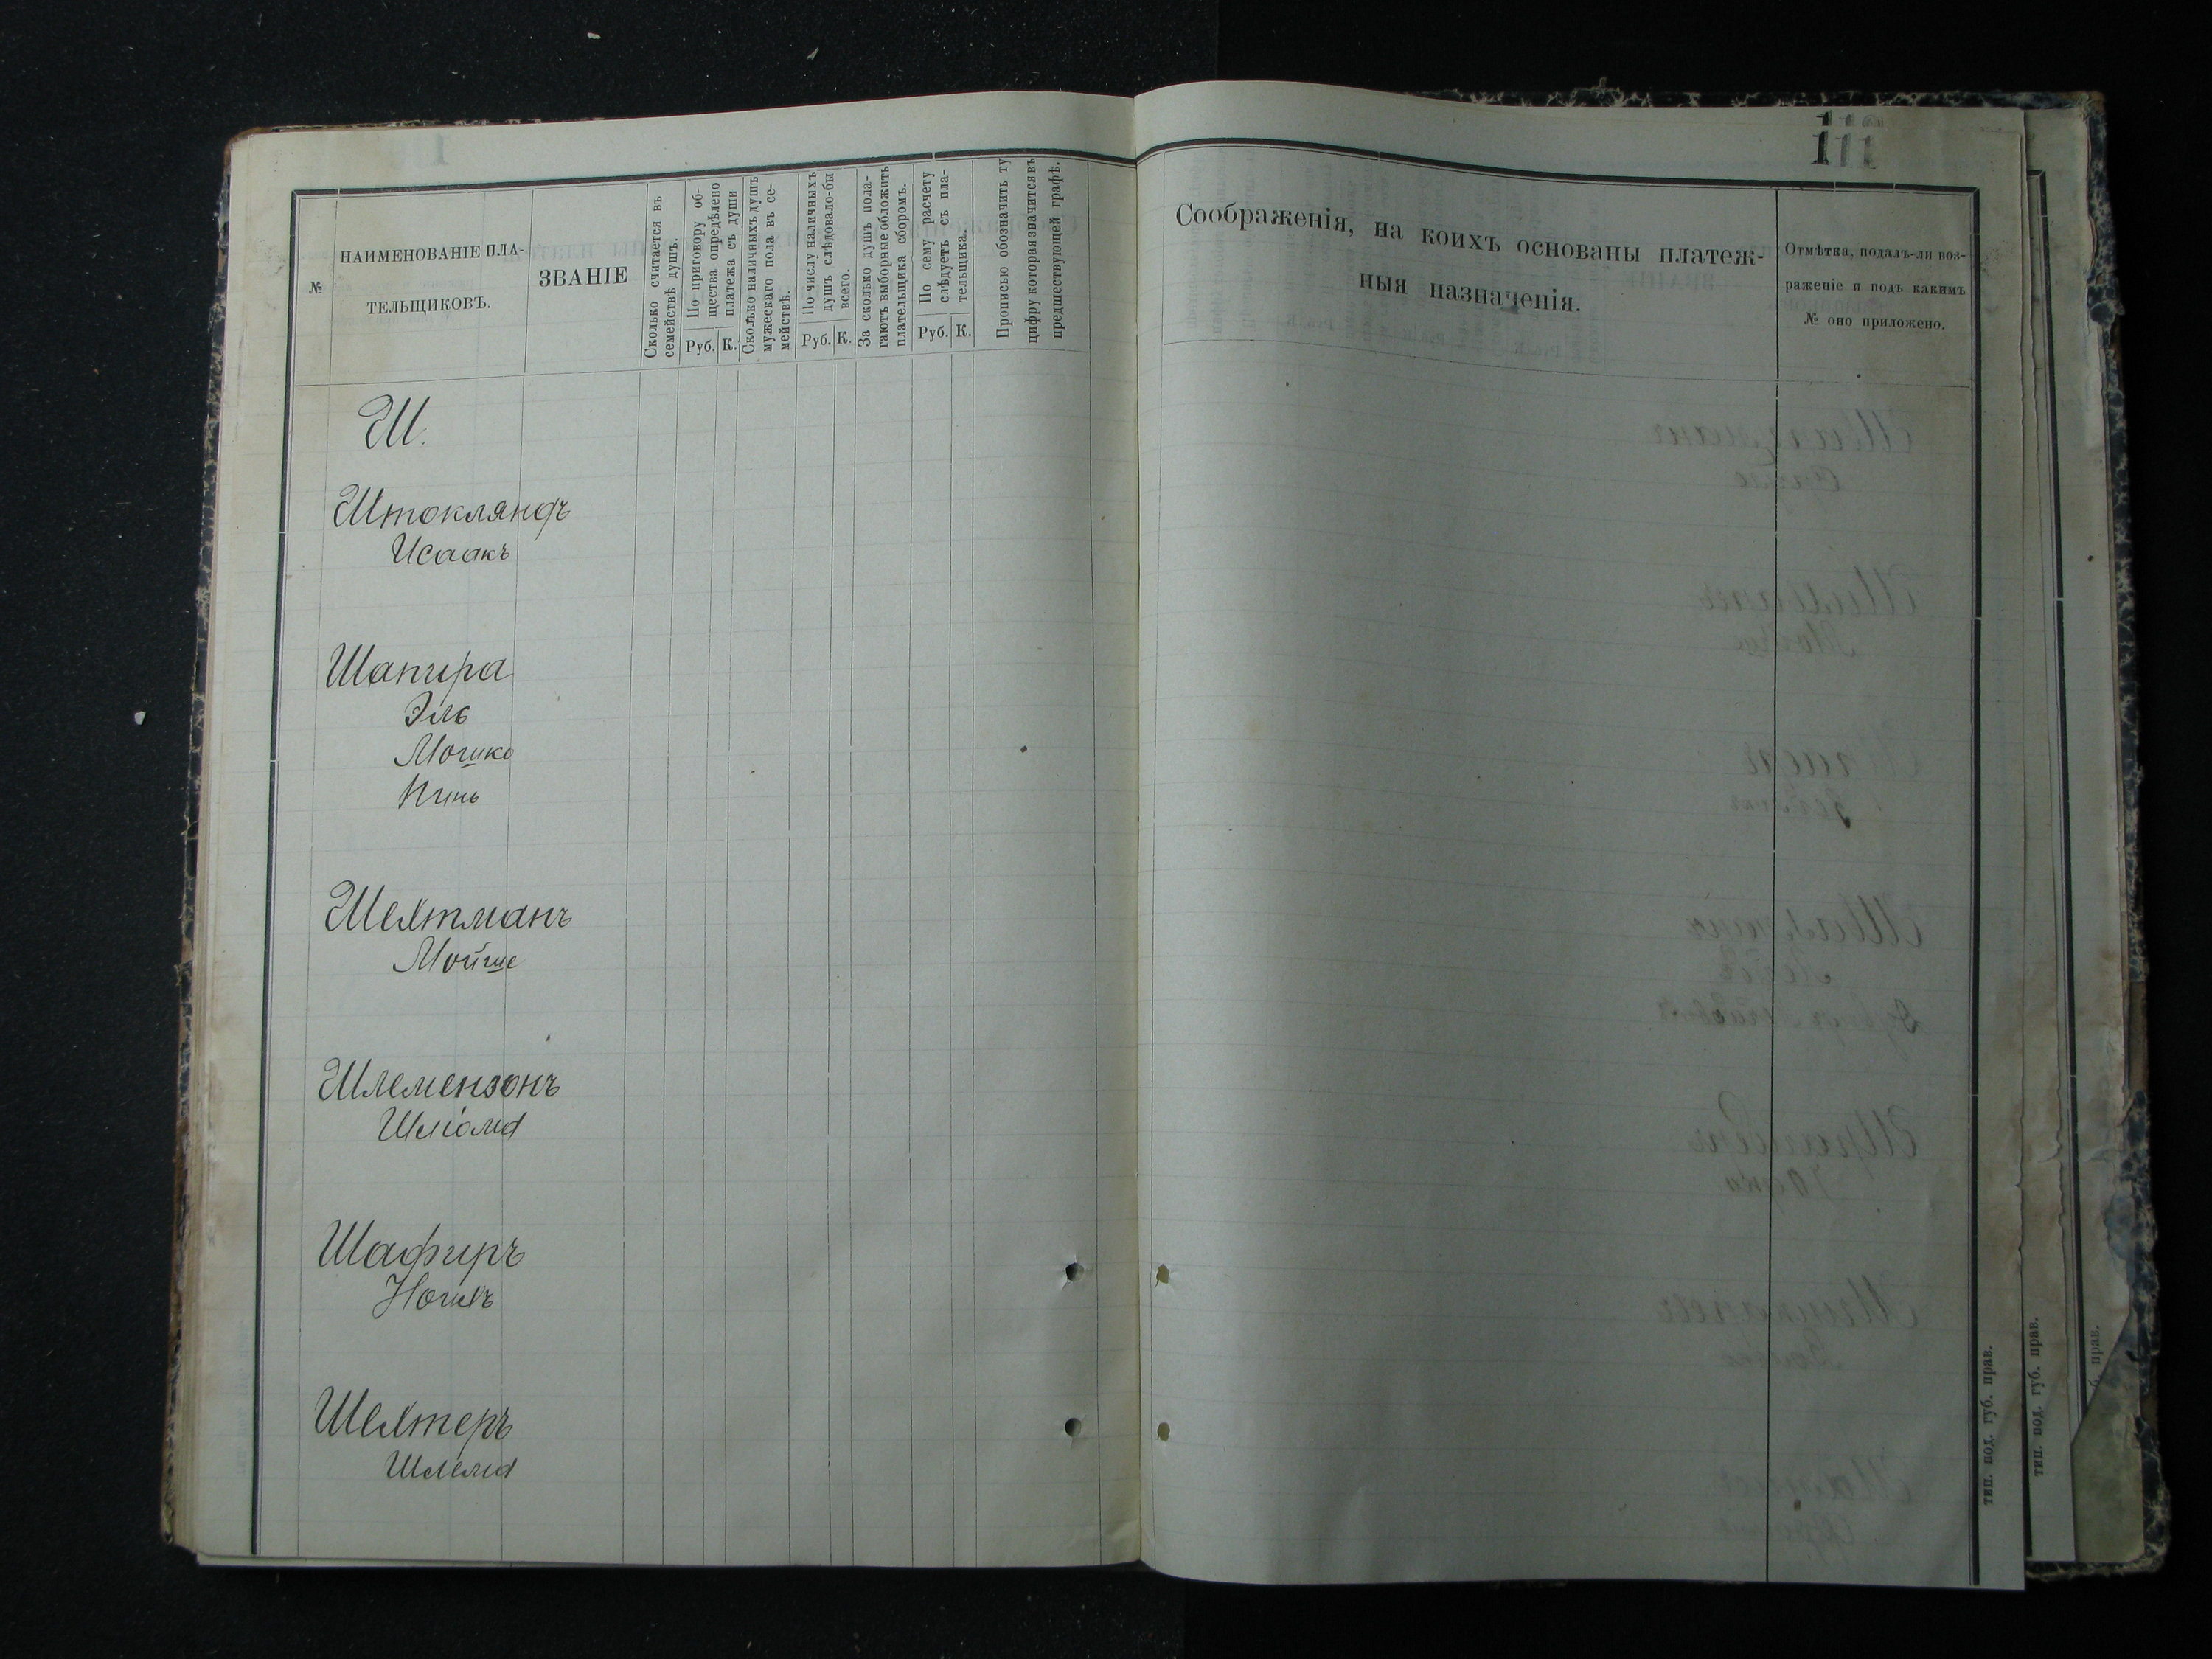 111
№
НАИМЕНОВАНІЕ ПЛА-
ТЕЛЬЩИКОВЪ.
ЗВАНІЕ
Сколько считается въ
семействѣ душъ.
По приговору об-
щества опредѣлено
платежа съ души
Руб. К.
Сколько наличныхъ душъ
мужескаго пола въ се-
мействѣ.
По числу наличныхъ
душъ слѣдовало-бы
всего.
Руб. К.
За сколько душъ пола-
гаютъ выборные обложить
плательщика сборомъ.
По сему расчету
слѣдуетъ съ пла-
тельщика.
Руб. К.
Прописью обозначить ту
цифру которая значится въ
предшествующей графѣ.
Соображенія, на коихъ основаны платеж-
ныя назначенія.
Отмѣтка, подалъ-ли воз-
раженіе и подъ какимъ
№ оно приложено.
Ш.
Штокляндъ
Исаакъ
Шапира
Эль
Мошко
Пинь
Шехтманъ
Мойше
Шлемензонъ
Шліома
Шафиръ
Шехтеръ
Шлема
тип. под. губ. прав.
тип. под. губ. прав.
б. прав.